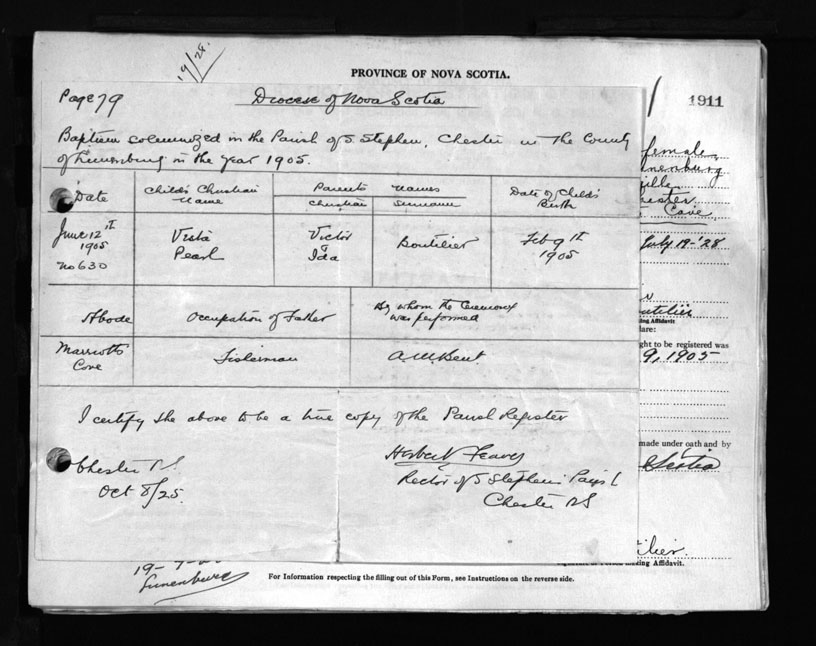 19/28.
PROVINCE OF NOVA SCOTIA.
1911
Page 79
Diocese of Nova Scotia
Baptism solemnized in the Parish of S Stephen, Chester in the County
of Lunenburg in the year 1905.
Date
Child's Christian Name
Parents Names
Christian
Surname
Date of Child's Birth
June 12th 1905
No 630
Vesta Pearl
Victor & Ida
Boutilier
Feb 9th 1905
Abode
Occupation of Father
By whom the Ceremony was performed
Marriotts Cove
Fisherman
I certify the above to be a true copy of the Parish Register
Chester N.S.
Oct 8/25.
Herbert
Rector of S Stephens Parish
Chester NS
female
nenburg
ville
hester
Cove
July 19-'28
outilier
king Affidavit
lare:
ght to be registered was
9, 1905
made under oath and by
Scotia
ilier.
king Affidavit.
Lunenburg
For Information respecting the filling out of this Form, see Instructions on the reverse side.